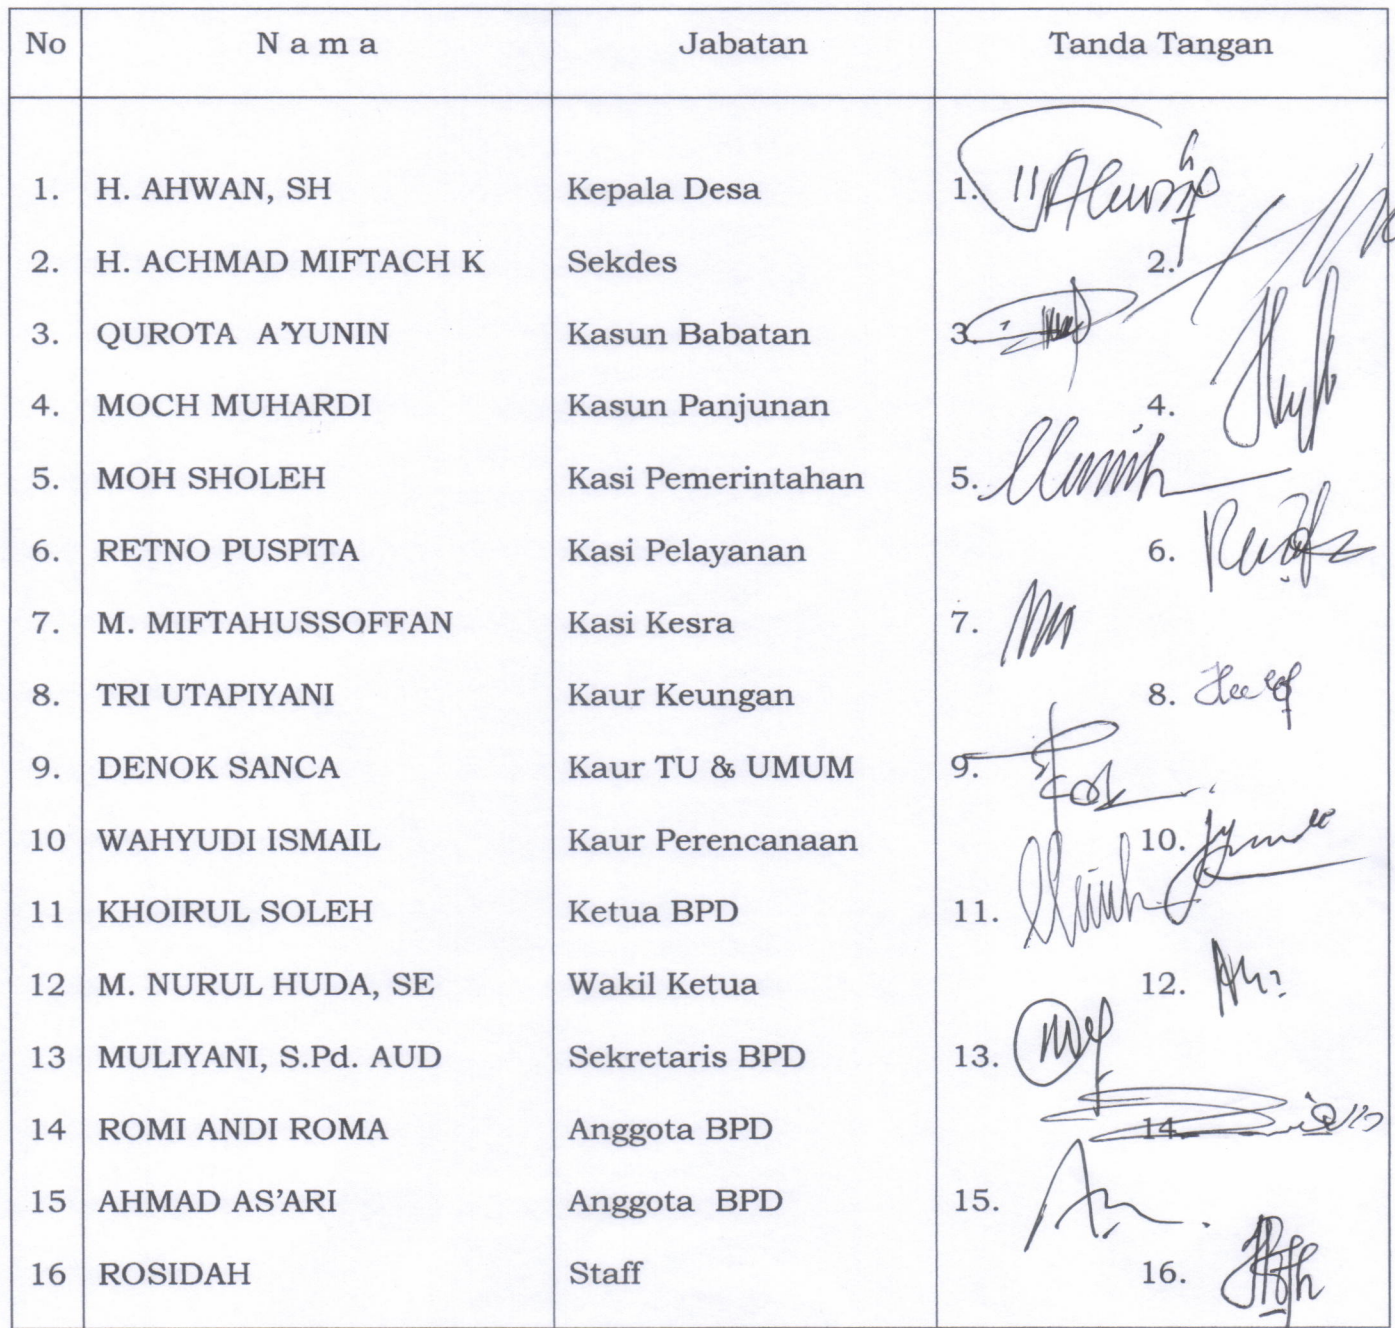 No N a m a Jabatan Tanda Tangan
1. H. AHWAN, SH Kepala Desa 1.
2. H. ACHMAD MIFTACH K Sekdes 2.
3. QUROTA A'YUNIN Kasun Babatan 3.
4. MOCH MUHARDI Kasun Panjunan 4.
5. MOH SHOLEH Kasi Pemerintahan 5.
6. RETNO PUSPITA Kasi Pelayanan 6.
7. M. MIFTAHUSSOFFAN Kasi Kesra 7.
8. TRI UTAPIYANI Kaur Keungan 8.
9. DENOK SANCA Kaur TU & UMUM 9.
10 WAHYUDI ISMAIL Kaur Perencanaan 10.
11 KHOIRUL SOLEH Ketua BPD 11.
12 M. NURUL HUDA, SE Wakil Ketua 12.
13 MULIYANI, S.Pd. AUD Sekretaris BPD 13.
14 ROMI ANDI ROMA Anggota BPD 14.
15 AHMAD AS'ARI Anggota BPD 15.
16 ROSIDAH Staff 16.